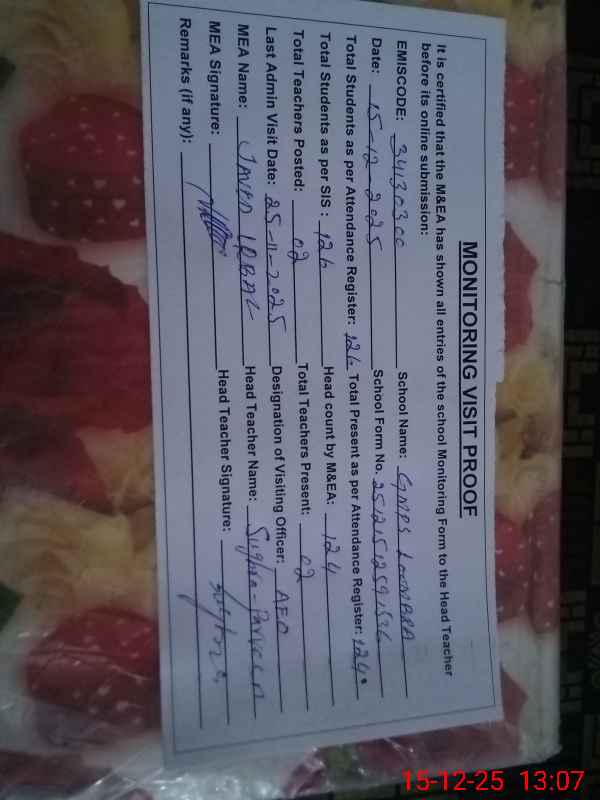 MONITORING VISIT PROOF
It is certified that the M&EA has shown all entries of the school Monitoring Form to the Head Teacher
before its online submission:
EMISCODE: 34130300 School Name: GMPS LOONABRA
Date: 15-12-2025 School Form No. 25121512591536
Total Students as per Attendance Register: 126 Total Present as per Attendance Register: 124
Total Students as per SIS : 126 Head count by M&EA: 124
Total Teachers Posted: 02 Total Teachers Present: 02
Last Admin Visit Date: 25-11-2025 Designation of Visiting Officer: AEO
MEA Name: JAVED IQBAL Head Teacher Name: Sughra-Parveen
MEA Signature: Head Teacher Signature:
Remarks (if any):
15-12-25 13:07